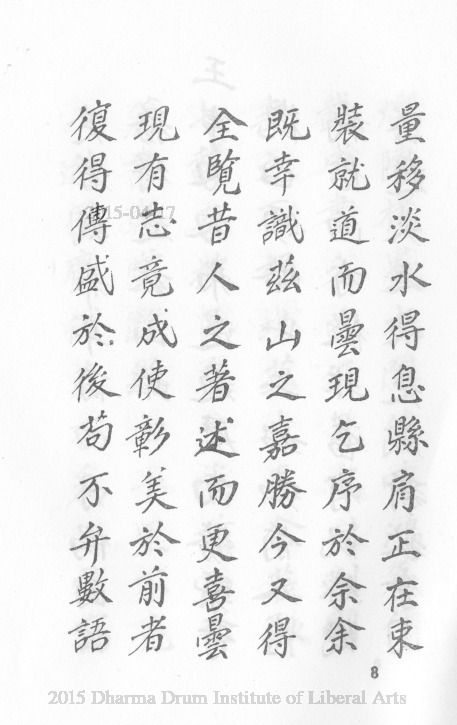 量移淡水得息縣肩正在束
裝就道而曇現乞序於余余
既幸識茲山之嘉勝今又得
全覽昔人之著述而更喜曇
現有志竟成使彰美於前者
復得傳盛於後苟不弁數語
8
2015 Dharma Drum Institute of Liberal Arts